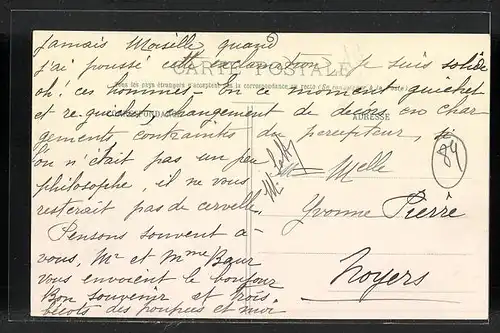 Jamais Moiselle, quand
j'ai poussé cette exclamation, je suis solide
CARTE POSTALE
oh! ces hommes - En ce moment guichet
Tous les pays étrangers n'acceptent pas la correspondance au recto
et re guichet changement de décors en char-
CORRESPONDANCE
ADRESSE
gements contraintes du percepteur, si
l'on n'était pas un peu
philosophe, il ne vous
resterait pas de cervelle.
Pensons souvent à
vous, Mr et Mme Baur
vous envoient le bonjour
Bon souvenir et gros
bécots des poupées et moi
84
Melle
Yvonne Pierre
Noyers